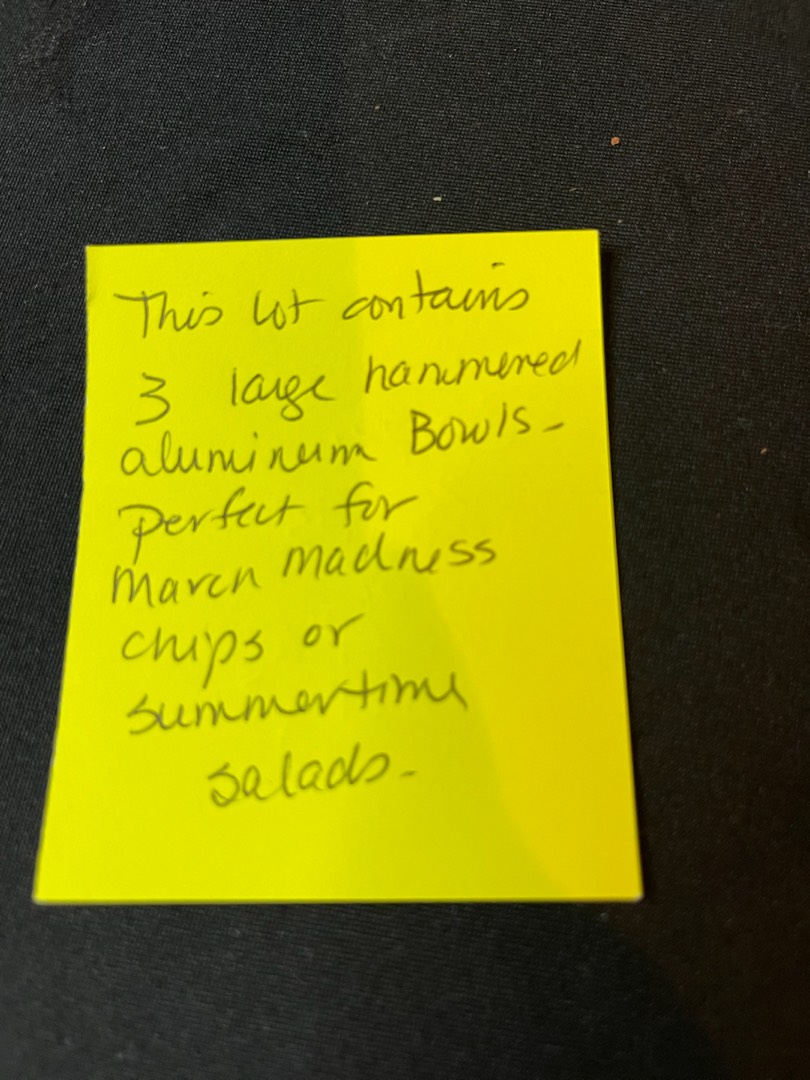 This lot contains
3 large hammered
aluminum Bowls-
perfect for
March madness
chips or
summertime
salads-